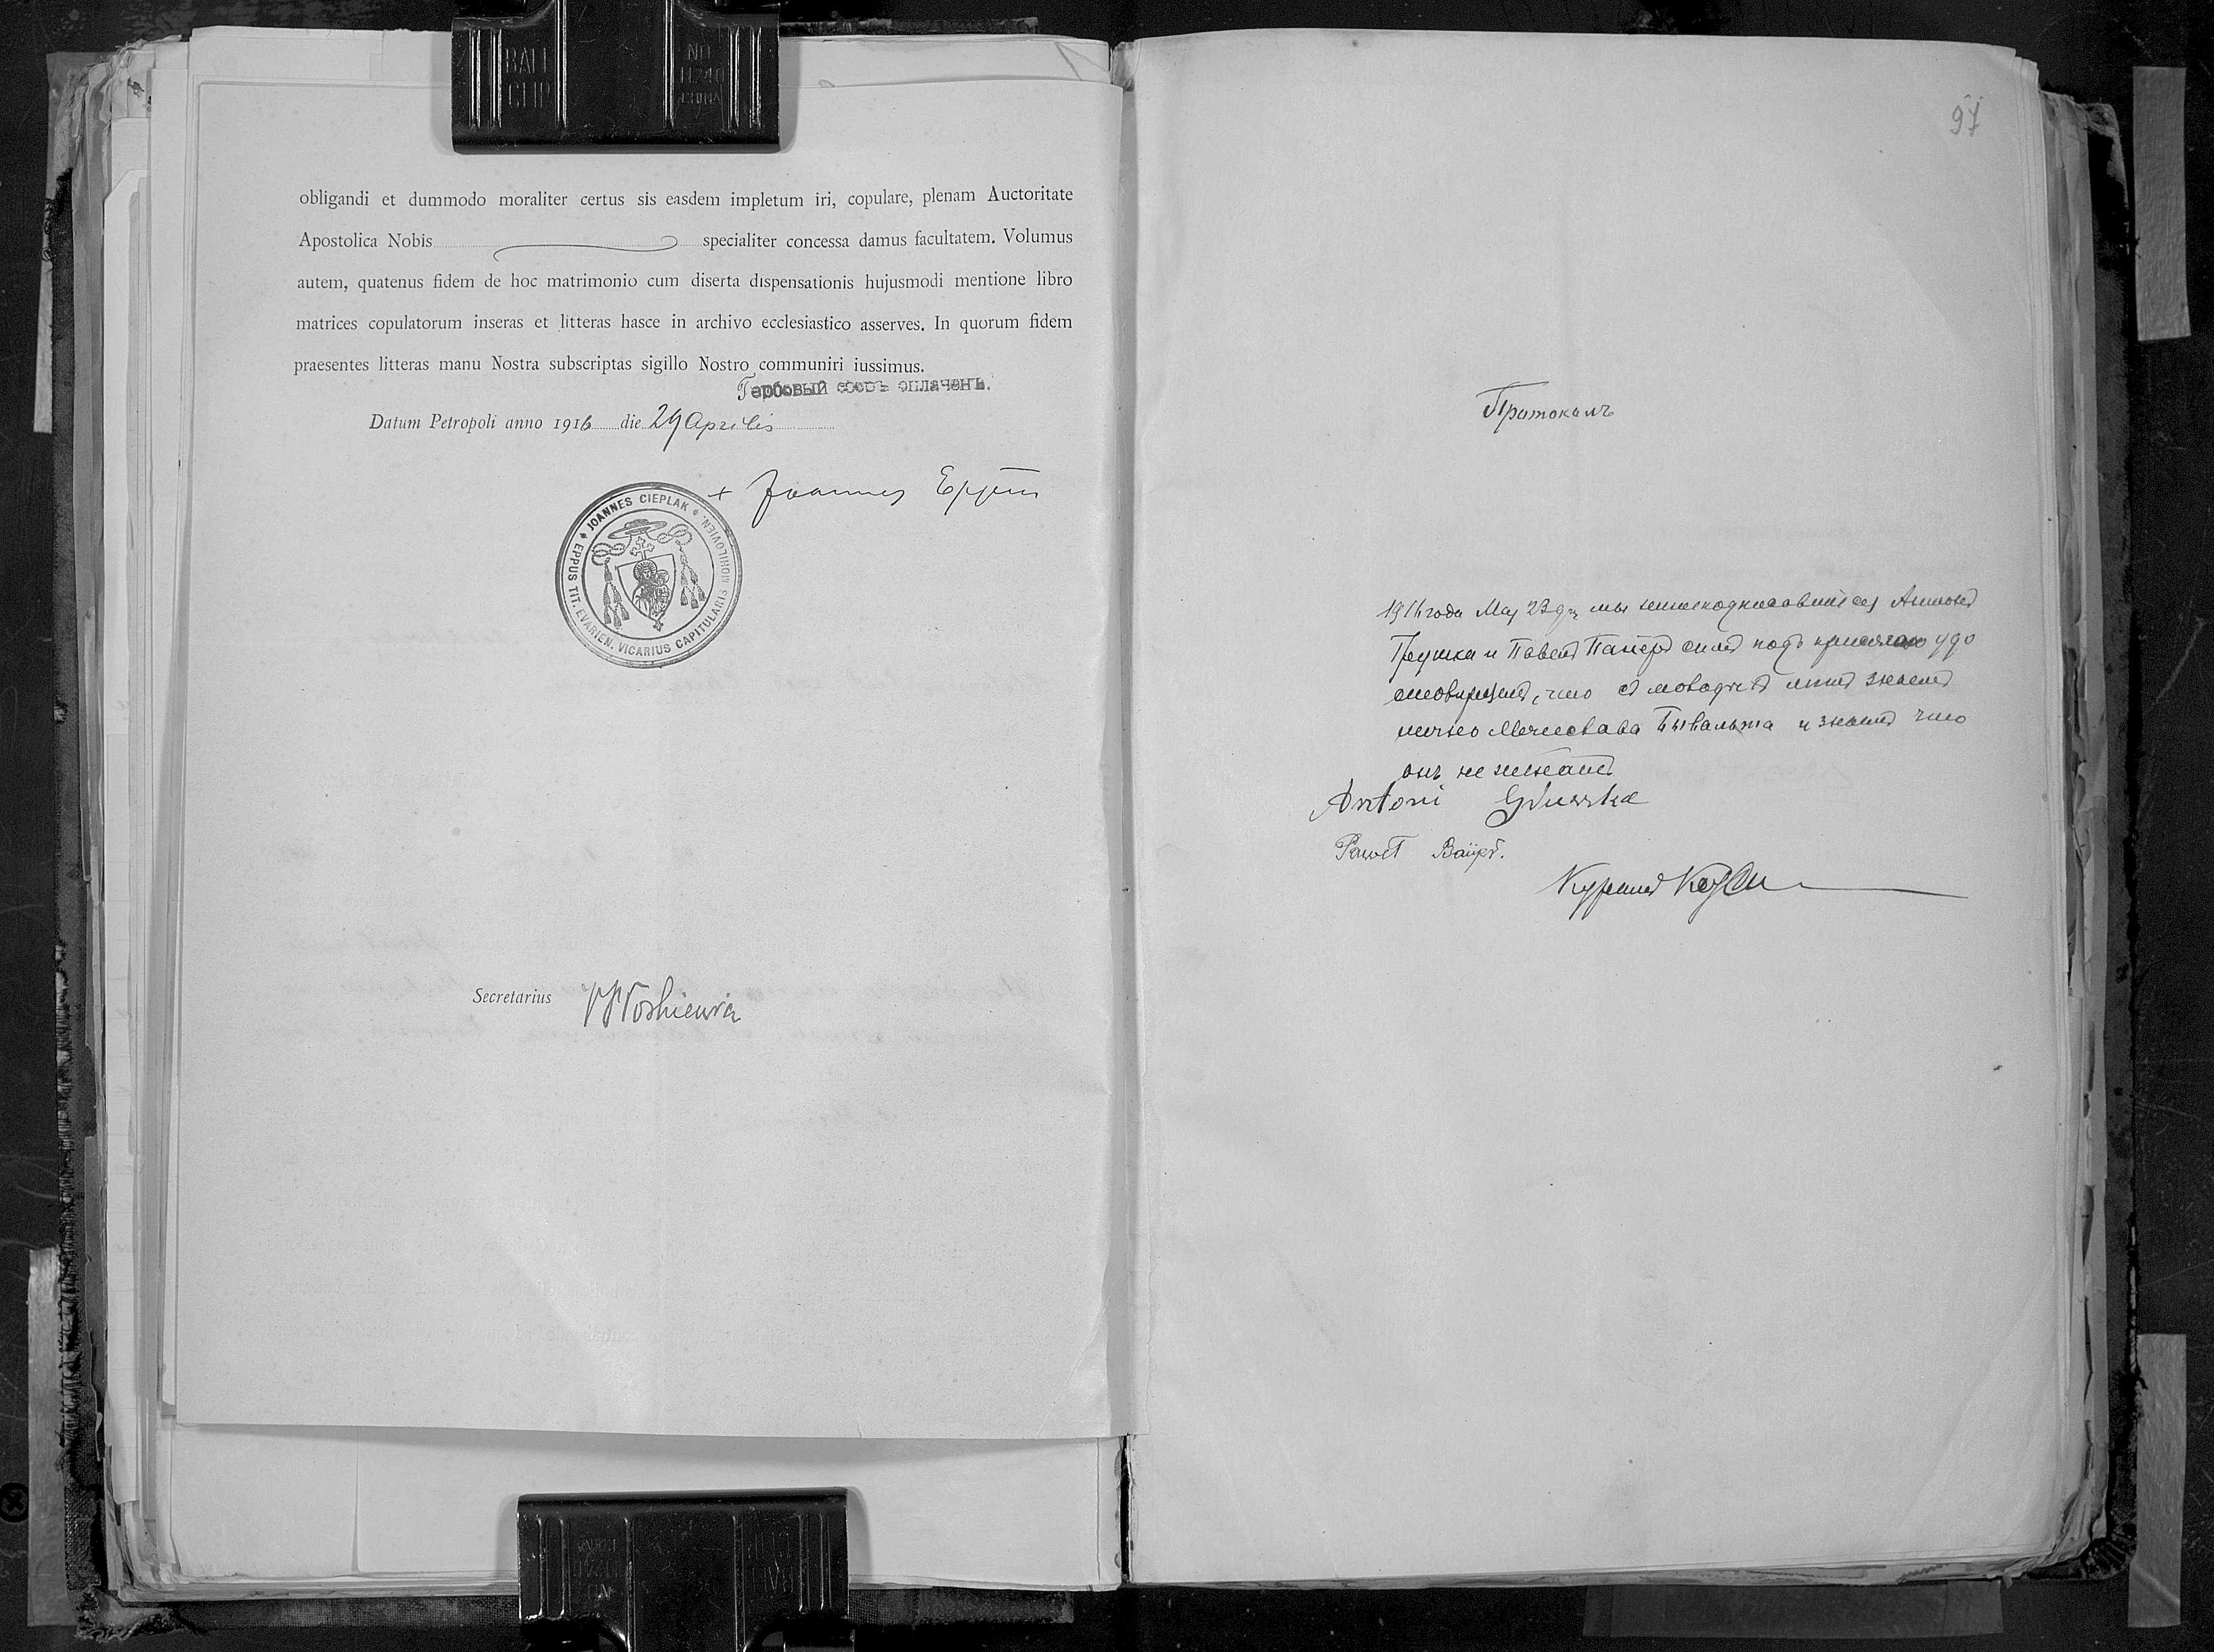 obligandi et dummodo moraliter certus sis easdem impletum iri, copulare, plenam Auctoritate
Apostolica Nobis specialiter concessa damus facultatem. Volumus
autem, quatenus fidem de hoc matrimonio cum diserta dispensationis hujusmodi mentione libro
matrices copulatorum inseras et litteras hasce in archivo ecclesiastico asserves. In quorum fidem
praesentes litteras manu Nostra subscriptas sigillo Nostro communiri iussimus.
Гербовый сборъ оплаченъ.
Datum Petropoli anno 1916 die 29 Aprilis
+ Joannes Eppus
JOANNES CIEPLAK
EPPUS TIT. EVARIEN. VICARIUS CAPITULARIS MOHILOVIEN.
Secretarius
97
Протоколъ
1916 года Мая 23 дня мы нижеподписавшіеся Антонъ
и Павелъ симъ подъ присягою удо
стовѣряемъ, что съ молодыхъ лѣтъ знаемъ
лично Мечислава Бывальта и знаемъ что
онъ не женатъ
Antoni
Paweł